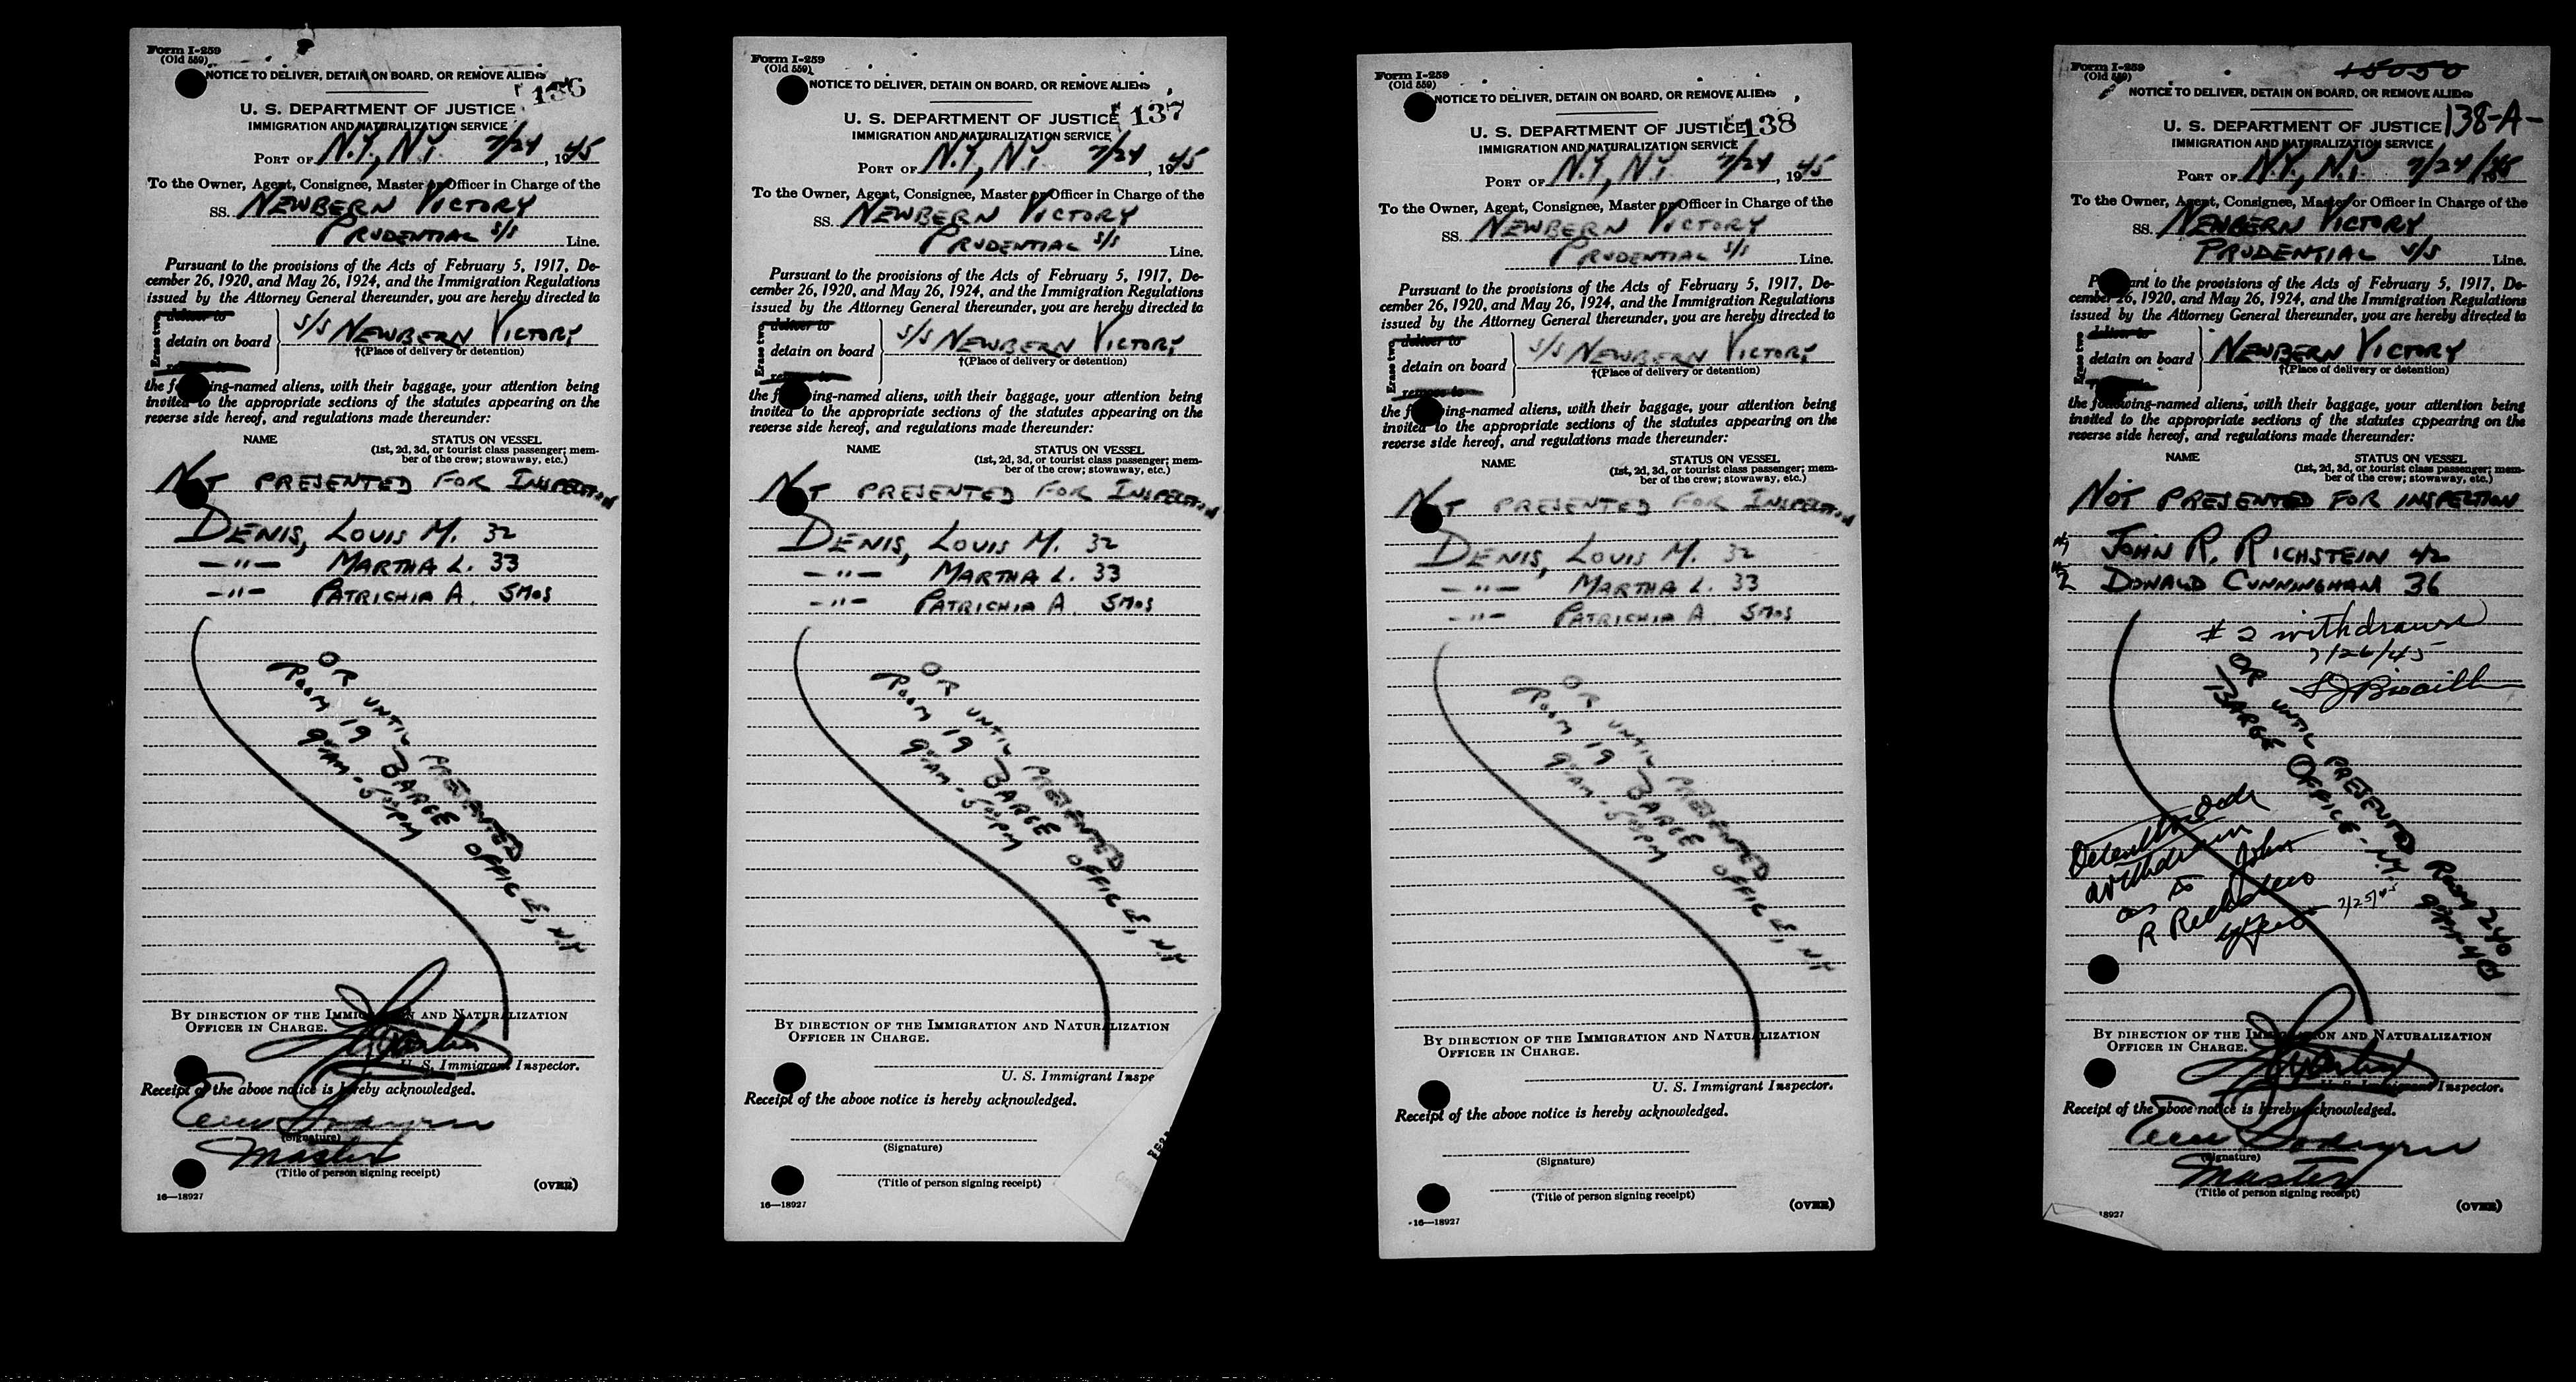 Form I-259
(Old 559)
NOTICE TO DELIVER, DETAIN ON BOARD, OR REMOVE ALIENS
136
U. S. DEPARTMENT OF JUSTICE
IMMIGRATION AND NATURALIZATION SERVICE
PORT OF N.Y., N.Y. 7/24, 1945
To the Owner, Agent, Consignee, Master or Officer in Charge of the
SS. NEWBERN VICTORY
PRUDENTIAL S/S Line.
Pursuant to the provisions of the Acts of February 5, 1917, De-
cember 26, 1920, and May 26, 1924, and the Immigration Regulations
issued by the Attorney General thereunder, you are hereby directed to
Erase two
deliver to
detain on board
S/S NEWBERN VICTORY
†(Place of delivery or detention)
the f ing-named aliens, with their baggage, your attention being
invited to the appropriate sections of the statutes appearing on the
reverse side hereof, and regulations made thereunder:
NAME STATUS ON VESSEL
(1st, 2d, 3d, or tourist class passenger; mem-
ber of the crew; stowaway, etc.)
NOT PRESENTED FOR INSPECTION
DENIS, LOUIS M. 32
—"— MARTHA L. 33
—"— PATRICHIA A. 5MOS
OR UNTIL PRESENTED
ROOM 19 BARGE OFFICE, N.Y.
9AM-5PM
BY DIRECTION OF THE IMMIGRATION AND NATURALIZATION
OFFICER IN CHARGE.
U. S. Immigrant Inspector.
Receipt of the above notice is hereby acknowledged.
(Signature)
Master
(Title of person signing receipt)
16—18927
(OVER)
Form I-259
(Old 559)
NOTICE TO DELIVER, DETAIN ON BOARD, OR REMOVE ALIENS
U. S. DEPARTMENT OF JUSTICE 137
IMMIGRATION AND NATURALIZATION SERVICE
PORT OF N.Y., N.Y. 7/24, 1945
To the Owner, Agent, Consignee, Master or Officer in Charge of the
SS. NEWBERN VICTORY
PRUDENTIAL S/S Line.
Pursuant to the provisions of the Acts of February 5, 1917, De-
cember 26, 1920, and May 26, 1924, and the Immigration Regulations
issued by the Attorney General thereunder, you are hereby directed to
Erase two
deliver to
detain on board
S/S NEWBERN VICTORY
†(Place of delivery or detention)
the f ing-named aliens, with their baggage, your attention being
invited to the appropriate sections of the statutes appearing on the
reverse side hereof, and regulations made thereunder:
NAME STATUS ON VESSEL
(1st, 2d, 3d, or tourist class passenger; mem-
ber of the crew; stowaway, etc.)
NOT PRESENTED FOR INSPECTION
DENIS, LOUIS M. 32
—"— MARTHA L. 33
—"— PATRICHIA A. 5MOS
OR UNTIL PRESENTED
ROOM 19 BARGE OFFICE, N.Y.
9AM-5PM
BY DIRECTION OF THE IMMIGRATION AND NATURALIZATION
OFFICER IN CHARGE.
U. S. Immigrant Inspe
Receipt of the above notice is hereby acknowledged.
(Signature)
(Title of person signing receipt)
16—18927
Form I-259
(Old 559)
NOTICE TO DELIVER, DETAIN ON BOARD, OR REMOVE ALIENS
U. S. DEPARTMENT OF JUSTICE 138
IMMIGRATION AND NATURALIZATION SERVICE
PORT OF N.Y., N.Y. 7/24, 1945
To the Owner, Agent, Consignee, Master or Officer in Charge of the
SS. NEWBERN VICTORY
PRUDENTIAL S/S Line.
Pursuant to the provisions of the Acts of February 5, 1917, De-
cember 26, 1920, and May 26, 1924, and the Immigration Regulations
issued by the Attorney General thereunder, you are hereby directed to
Erase two
deliver to
detain on board
remove to
S/S NEWBERN VICTORY
†(Place of delivery or detention)
the f ing-named aliens, with their baggage, your attention being
invited to the appropriate sections of the statutes appearing on the
reverse side hereof, and regulations made thereunder:
NAME STATUS ON VESSEL
(1st, 2d, 3d, or tourist class passenger; mem-
ber of the crew; stowaway, etc.)
NOT PRESENTED FOR INSPECTION
DENIS, LOUIS M. 32
—"— MARTHA L. 33
—"— PATRICHIA A. 5MOS
OR UNTIL PRESENTED
ROOM 19 BARGE OFFICE, N.Y.
9AM-5PM
BY DIRECTION OF THE IMMIGRATION AND NATURALIZATION
OFFICER IN CHARGE.
U. S. Immigrant Inspector.
Receipt of the above notice is hereby acknowledged.
(Signature)
(Title of person signing receipt)
16—18927
(OVER)
Form I-259
(Old 559)
15050
NOTICE TO DELIVER, DETAIN ON BOARD, OR REMOVE ALIENS
U. S. DEPARTMENT OF JUSTICE 138-A-
IMMIGRATION AND NATURALIZATION SERVICE
PORT OF N.Y., N.Y. 7/24/45
To the Owner, Agent, Consignee, Master or Officer in Charge of the
SS. NEWBERN VICTORY
PRUDENTIAL S/S Line.
P ant to the provisions of the Acts of February 5, 1917, De-
cember 26, 1920, and May 26, 1924, and the Immigration Regulations
issued by the Attorney General thereunder, you are hereby directed to
Erase two
deliver to
detain on board
NEWBERN VICTORY
†(Place of delivery or detention)
the following-named aliens, with their baggage, your attention being
invited to the appropriate sections of the statutes appearing on the
reverse side hereof, and regulations made thereunder:
NAME STATUS ON VESSEL
(1st, 2d, 3d, or tourist class passenger; mem-
ber of the crew; stowaway, etc.)
NOT PRESENTED FOR INSPECTION
#1 JOHN R. RICHSTEIN 42
#2 DONALD CUNNINGHAM 36
# 2 withdrawn
7/26/45
OR UNTIL PRESENTED ROOM 240
BARGE OFFICE - N.Y.
withdrawn
as to John
R Richstein
7/25/45
BY DIRECTION OF THE IMMIGRATION AND NATURALIZATION
OFFICER IN CHARGE.
U. S. Immigrant Inspector.
Receipt of the above notice is hereby acknowledged.
(Signature)
Master
(Title of person signing receipt)
18927
(OVER)